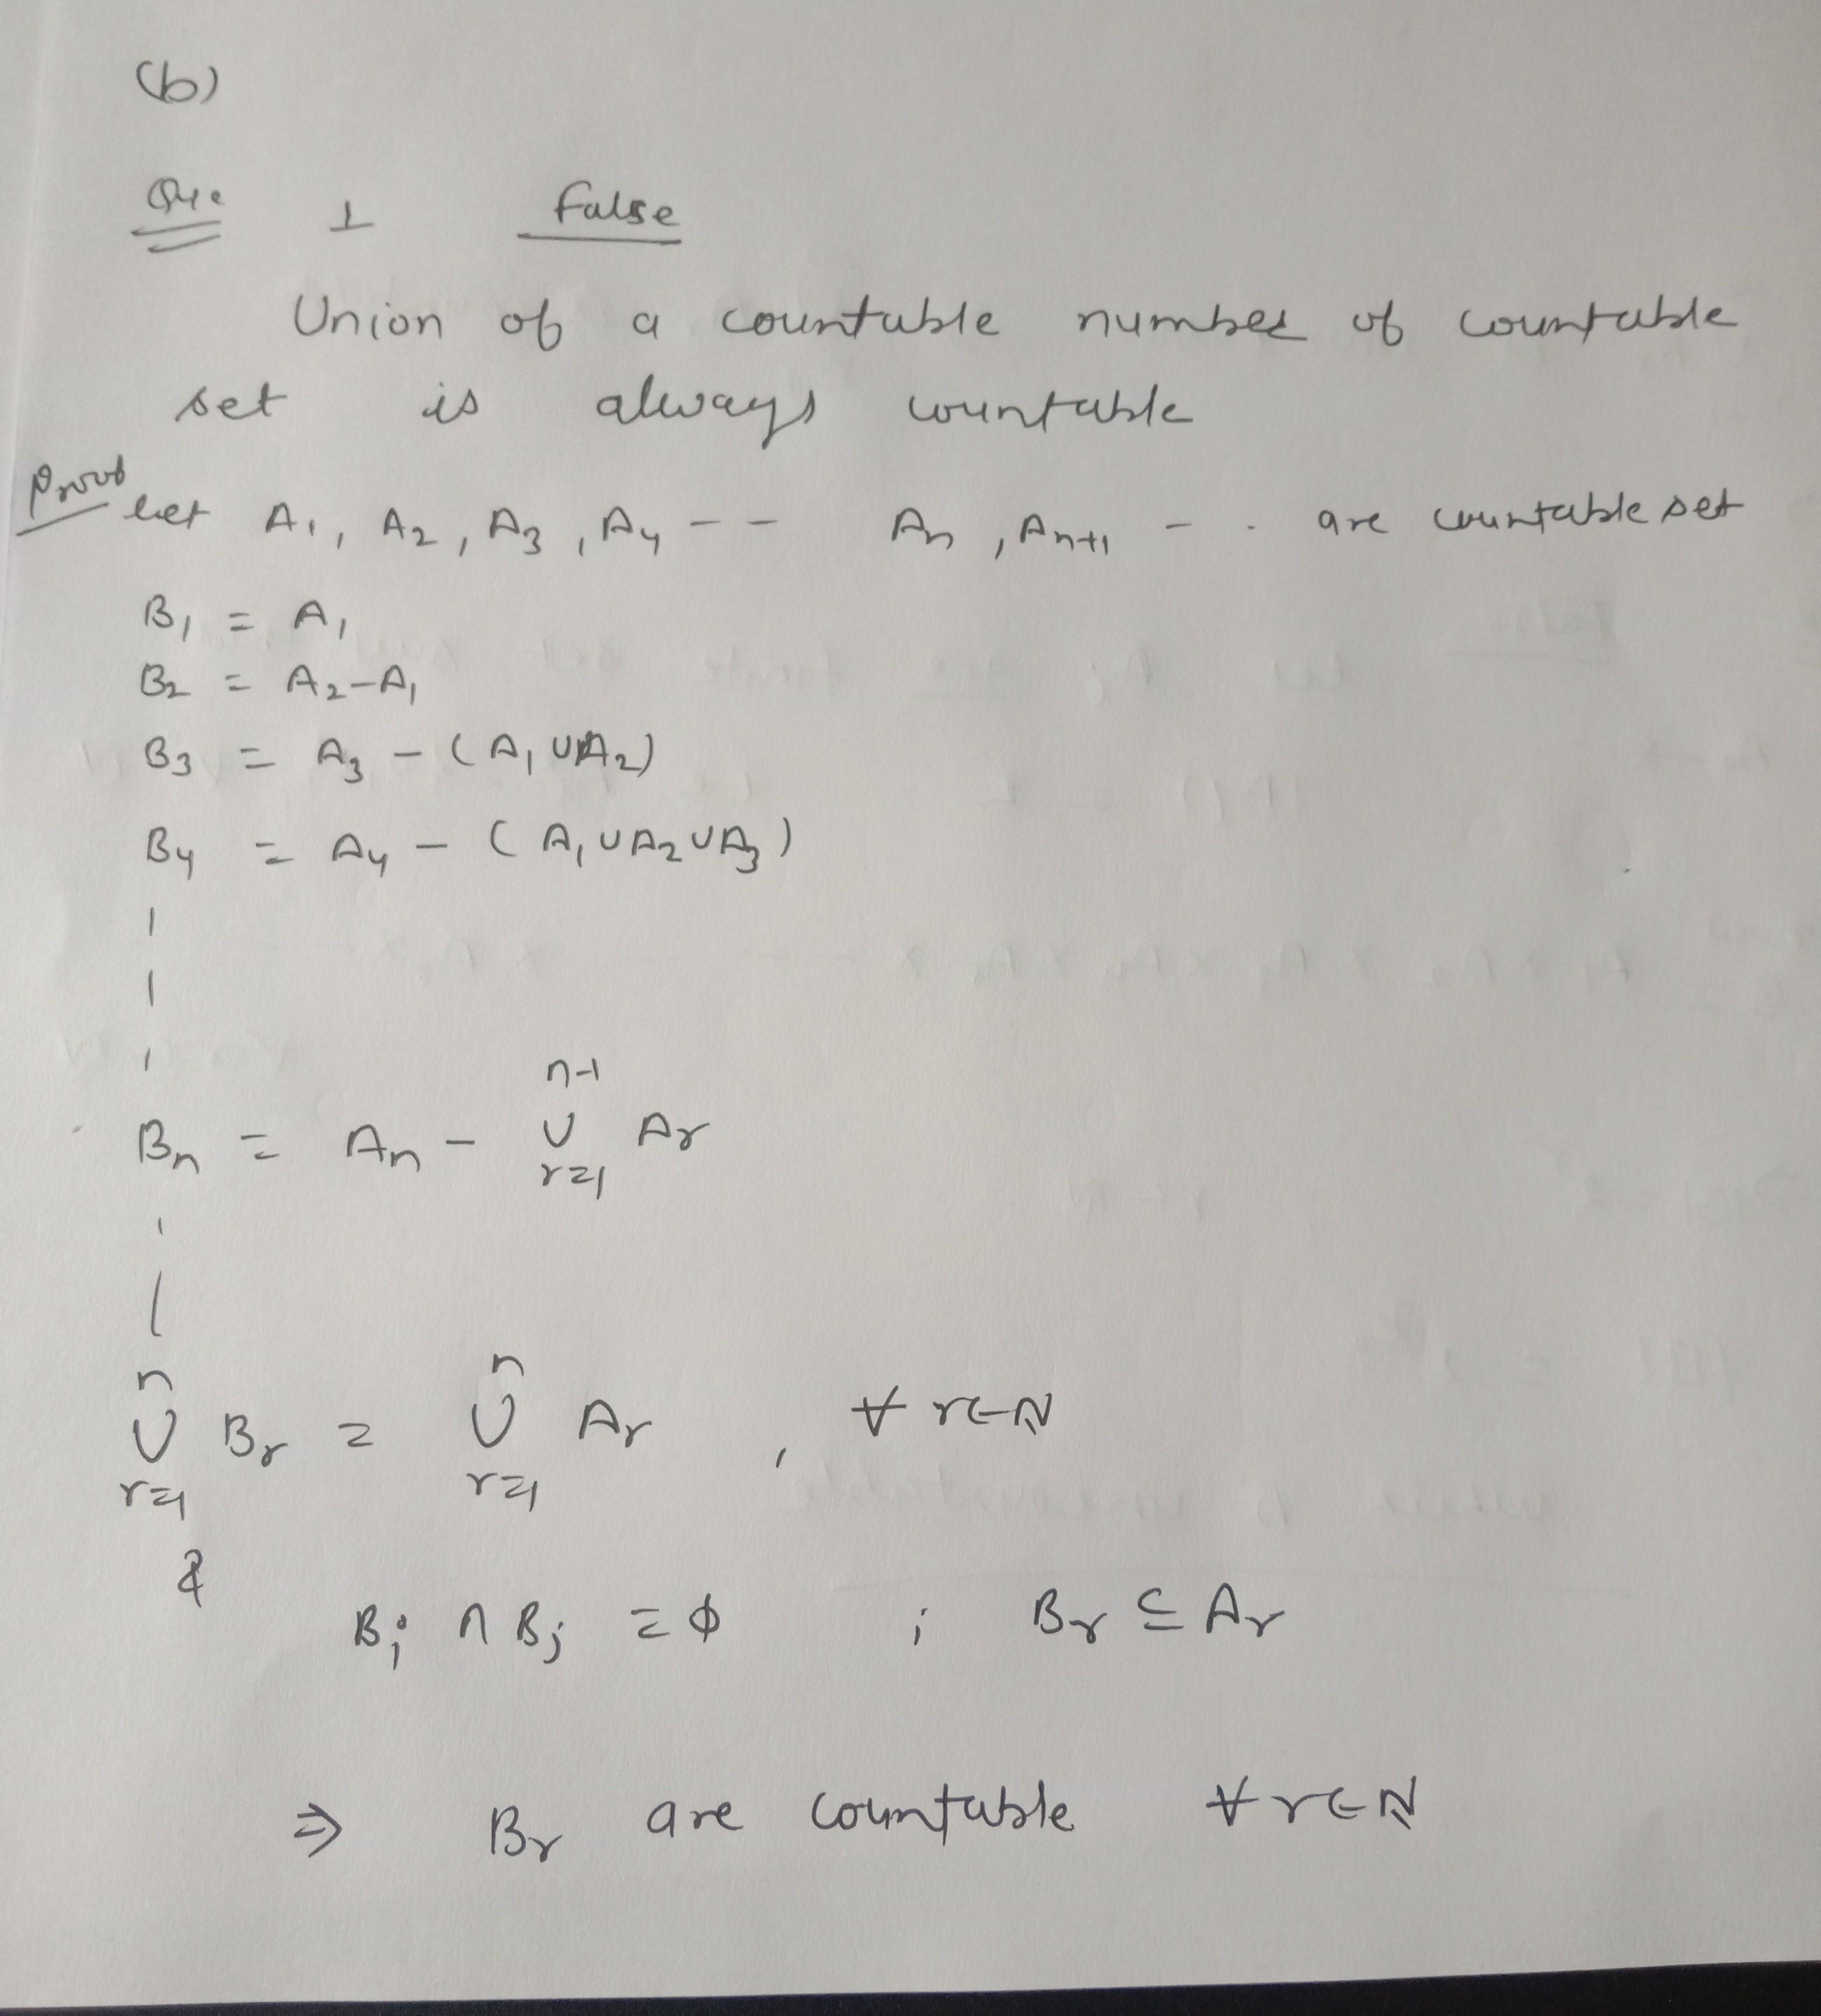 (b)
Que 1 False
Union of a countable number of countable
set is always countable
Proof let A₁, A₂, A₃, A₄ -- An, An+1 - . are countable set
B₁ = A₁
B₂ = A₂-A₁
B₃ = A₃ - (A₁ ∪ A₂)
B₄ = A₄ - (A₁ ∪ A₂ ∪ A₃)
n-1
Bn = An - ∪ Ar
r=1
n n
∪ Br = ∪ Ar , ∀ r∈N
r=1 r=1
&
Bi ∩ Bj = ϕ ; Br ⊆ Ar
⇒ Br are countable ∀ r∈N